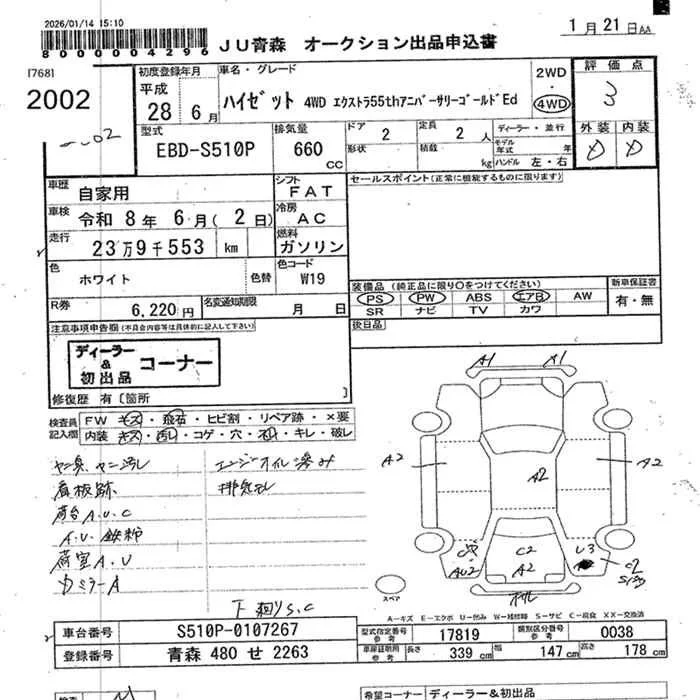 2026/01/14 15:10
8000004296
JU青森 オークション出品申込書
1月21日AA
[768]
2002
初度登録年月
平成
28年 6月
車名・グレード
ハイゼット 4WD エクストラ55thアニバーサリーゴールドEd
2WD
・
4WD
評価点
3
外装 内装
D D
型式
EBD-S510P
排気量
660
CC
ドア 2
形状
定員 2人
積載 kg
ディーラー・並行
モデル年式 年
ハンドル 左・右
車歴 自家用
シフト FAT
車検 令和 8年 6月(2日)
冷房 AC
走行 23万9千553 km
燃料 ガソリン
色 ホワイト 色替
色コード W19
R券 6,220円
名変通知期限 月 日
セールスポイント(正常に機能するものに限ります)
装備品(純正品に限り○をつけてください)
PS PW ABS エアB AW
SR ナビ TV カワ
新車保証書
有・無
後日品
注意事項申告欄(不具合内容等は具体的に記入して下さい)
ディーラー & 初出品 コーナー
修復歴 有〔箇所 〕
検査員記入欄
FW キズ・飛石・ヒビ割・リペア跡・×要
内装 キズ・汚レ・コゲ・穴・ネレ・キレ・破レ
ヤニ臭、ヤニ汚レ
看板跡
荷台A.U.C
A.U.鉄粉
荷室A.U
カミラーA
エンジンオイル滲み
排気モレ
下廻りS.C
A1 A1
A2 A2 A2
C2 U3
AU2 A2 C2
スペア
A-キズ E-エクボ U-凹み W-補修跡 S-サビ C-腐食 XX-交換済
車台番号 S510P-0107267
登録番号 青森 480 せ 2263
型式指定番号 参考 17819
類別区分番号 参考 0038
車庫証明用 参考 長さ 339 cm 幅 147 cm 高さ 178 cm
検査
希望コーナー ディーラー&初出品